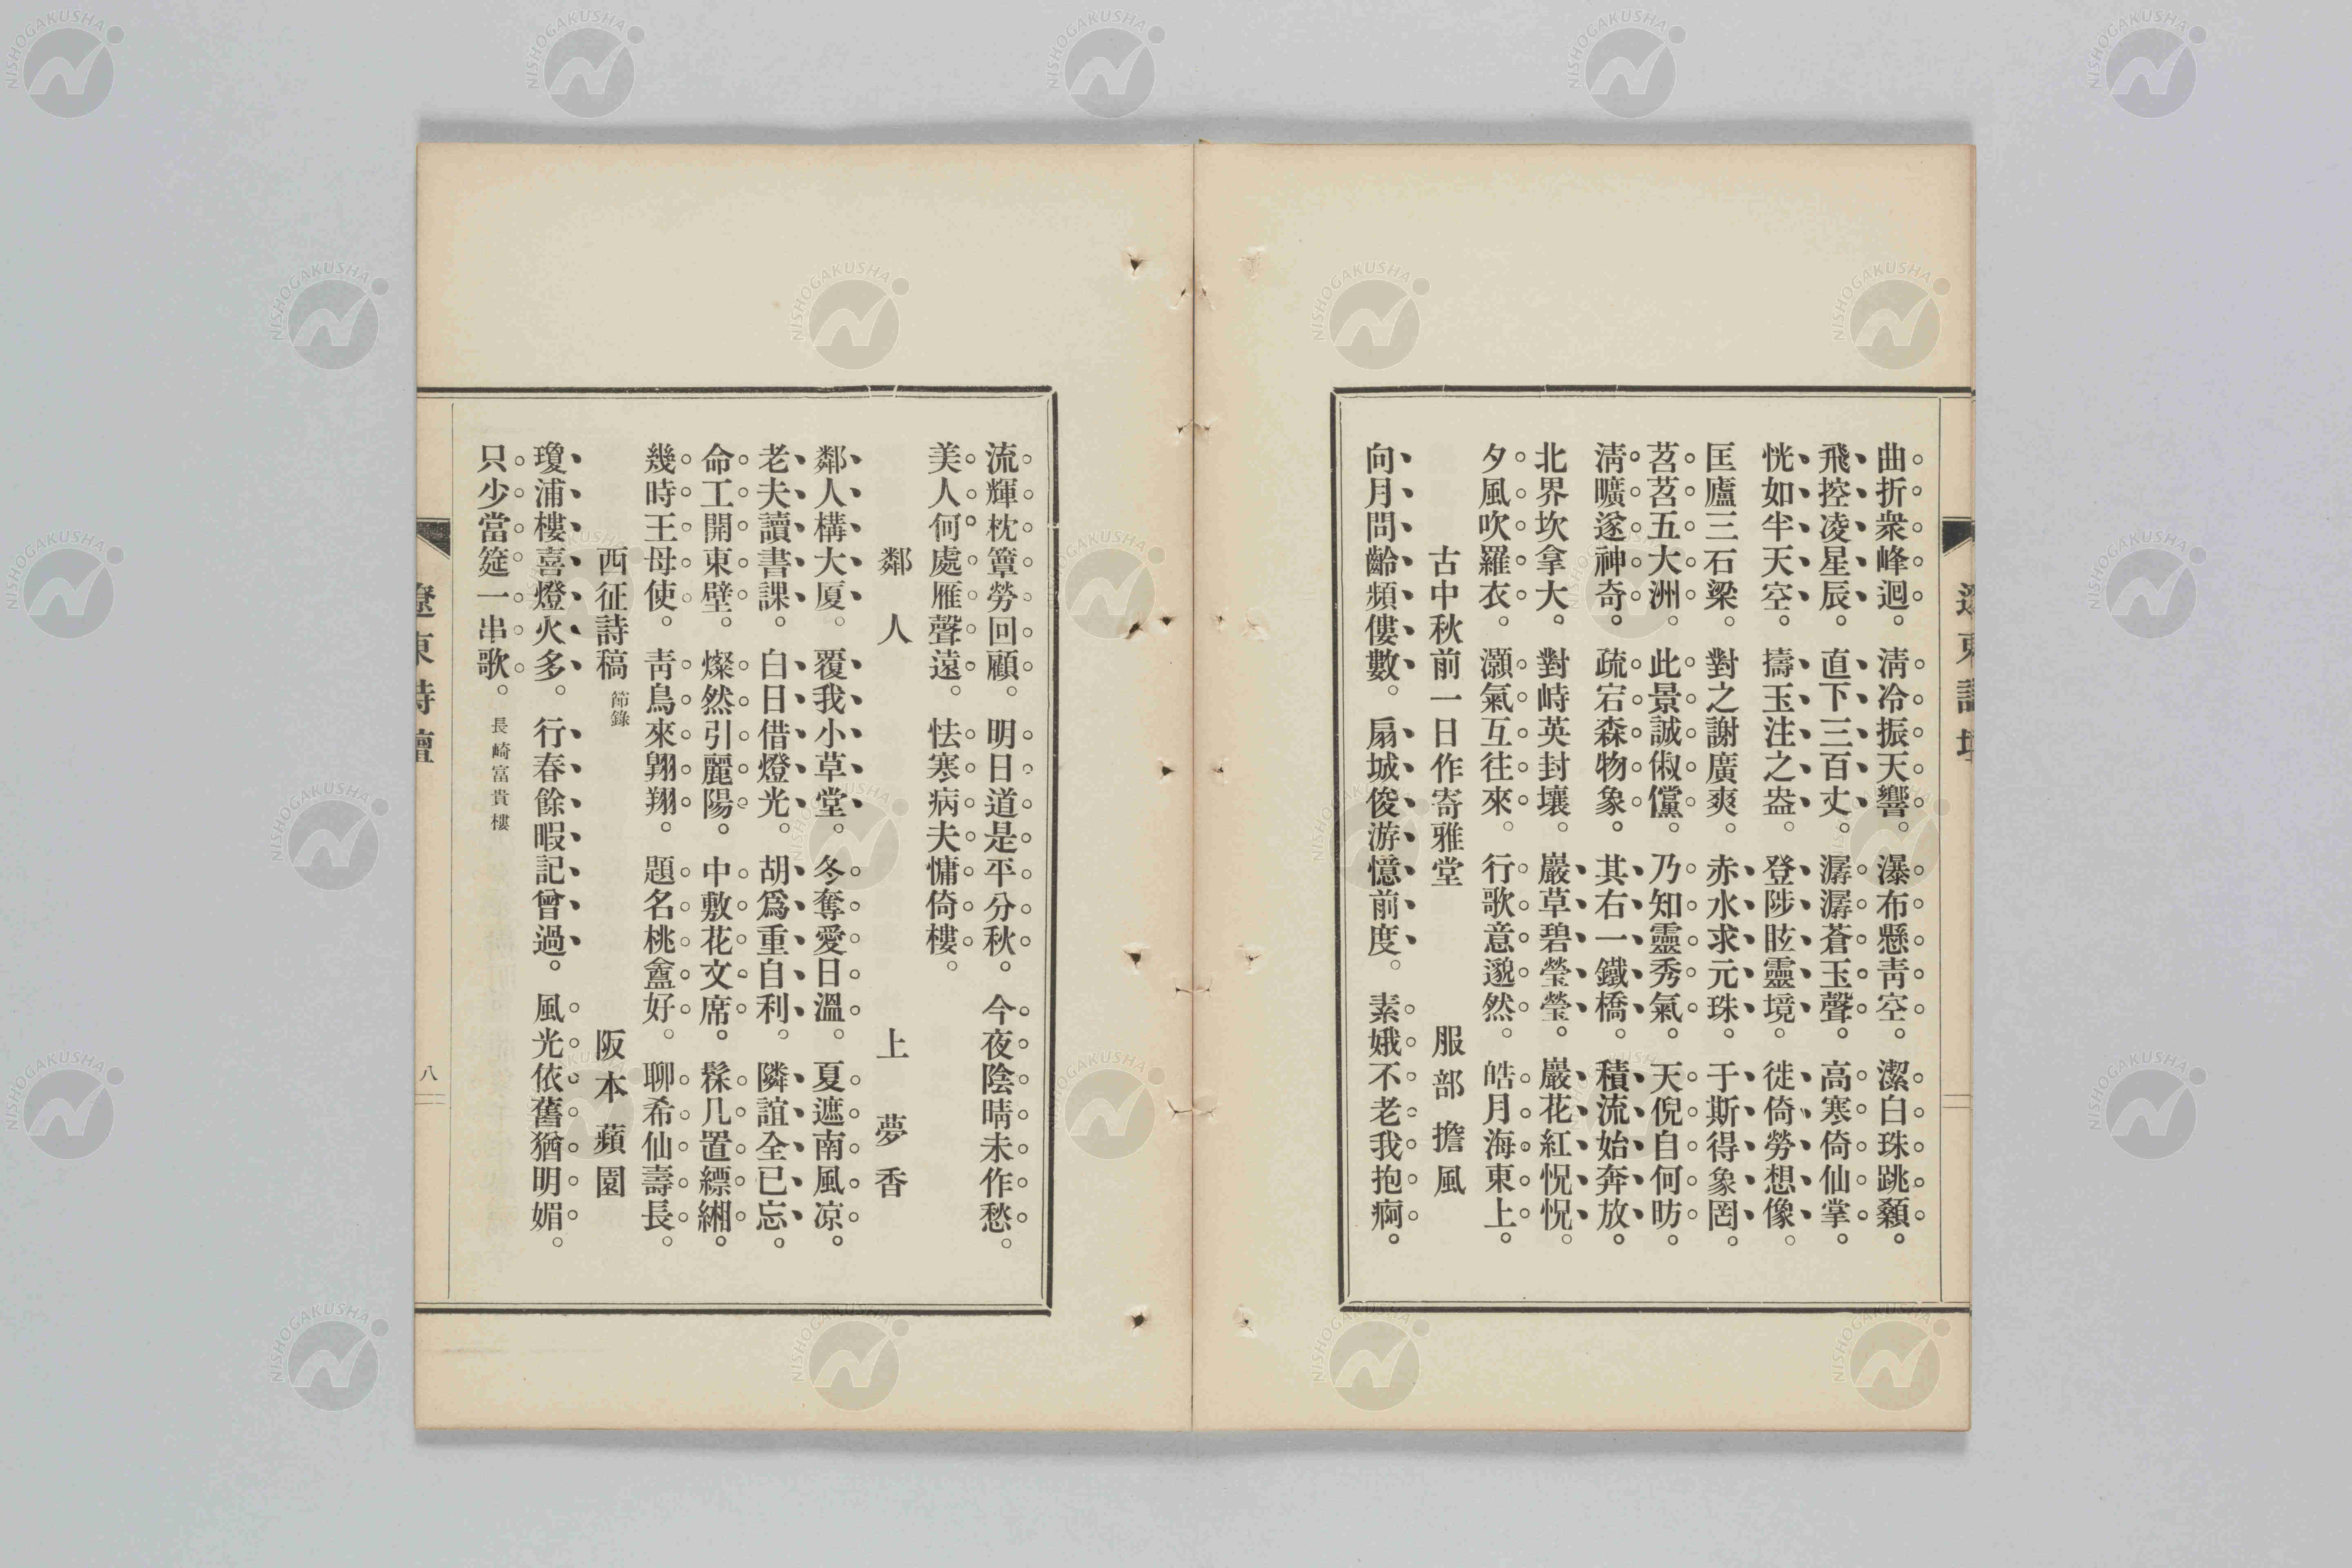 曲折衆峰迴。淸冷振天響。瀑布懸靑空。潔白珠跳顙。
飛控凌星辰。直下三百丈。潺潺蒼玉聲。高寒倚仙掌。
恍如半天空。擣玉注之盎。登陟眩靈境。徙倚勞想像。
匡廬三石梁。對之謝廣爽。赤水求元珠。于斯得象罔。
苕苕五大洲。此景誠俶儻。乃知靈秀氣。天倪自何昉。
淸曠邃神奇。疏宕森物象。其右一鐵橋。積流始奔放。
北界坎拿大。對峙英封壤。巖草碧瑩瑩。巖花紅怳怳。
夕風吹羅衣。灝氣互往來。行歌意邈然。皓月海東上。
古中秋前一日作寄雅堂 服部擔風
向月問齡頻僂數。扇城俊游憶前度。素娥不老我抱痾。
流輝枕簟勞回顧。明日道是平分秋。今夜陰晴未作愁。
美人何處雁聲遠。怯寒病夫慵倚樓。
鄰人 上夢香
鄰人構大厦。覆我小草堂。冬奪愛日溫。夏遮南風凉。
老夫讀書課。白日借燈光。胡爲重自利。隣誼全已忘。
命工開東壁。燦然引麗陽。中敷花文席。髹几置縹緗。
幾時王母使。靑鳥來翺翔。題名桃盦好。聊希仙壽長。
西征詩稿 節錄 阪本蘋園
瓊浦樓喜燈火多。行春餘暇記曾過。風光依舊猶明媚。
只少當筵一串歌。長崎富貴樓
遼東詩壇
八